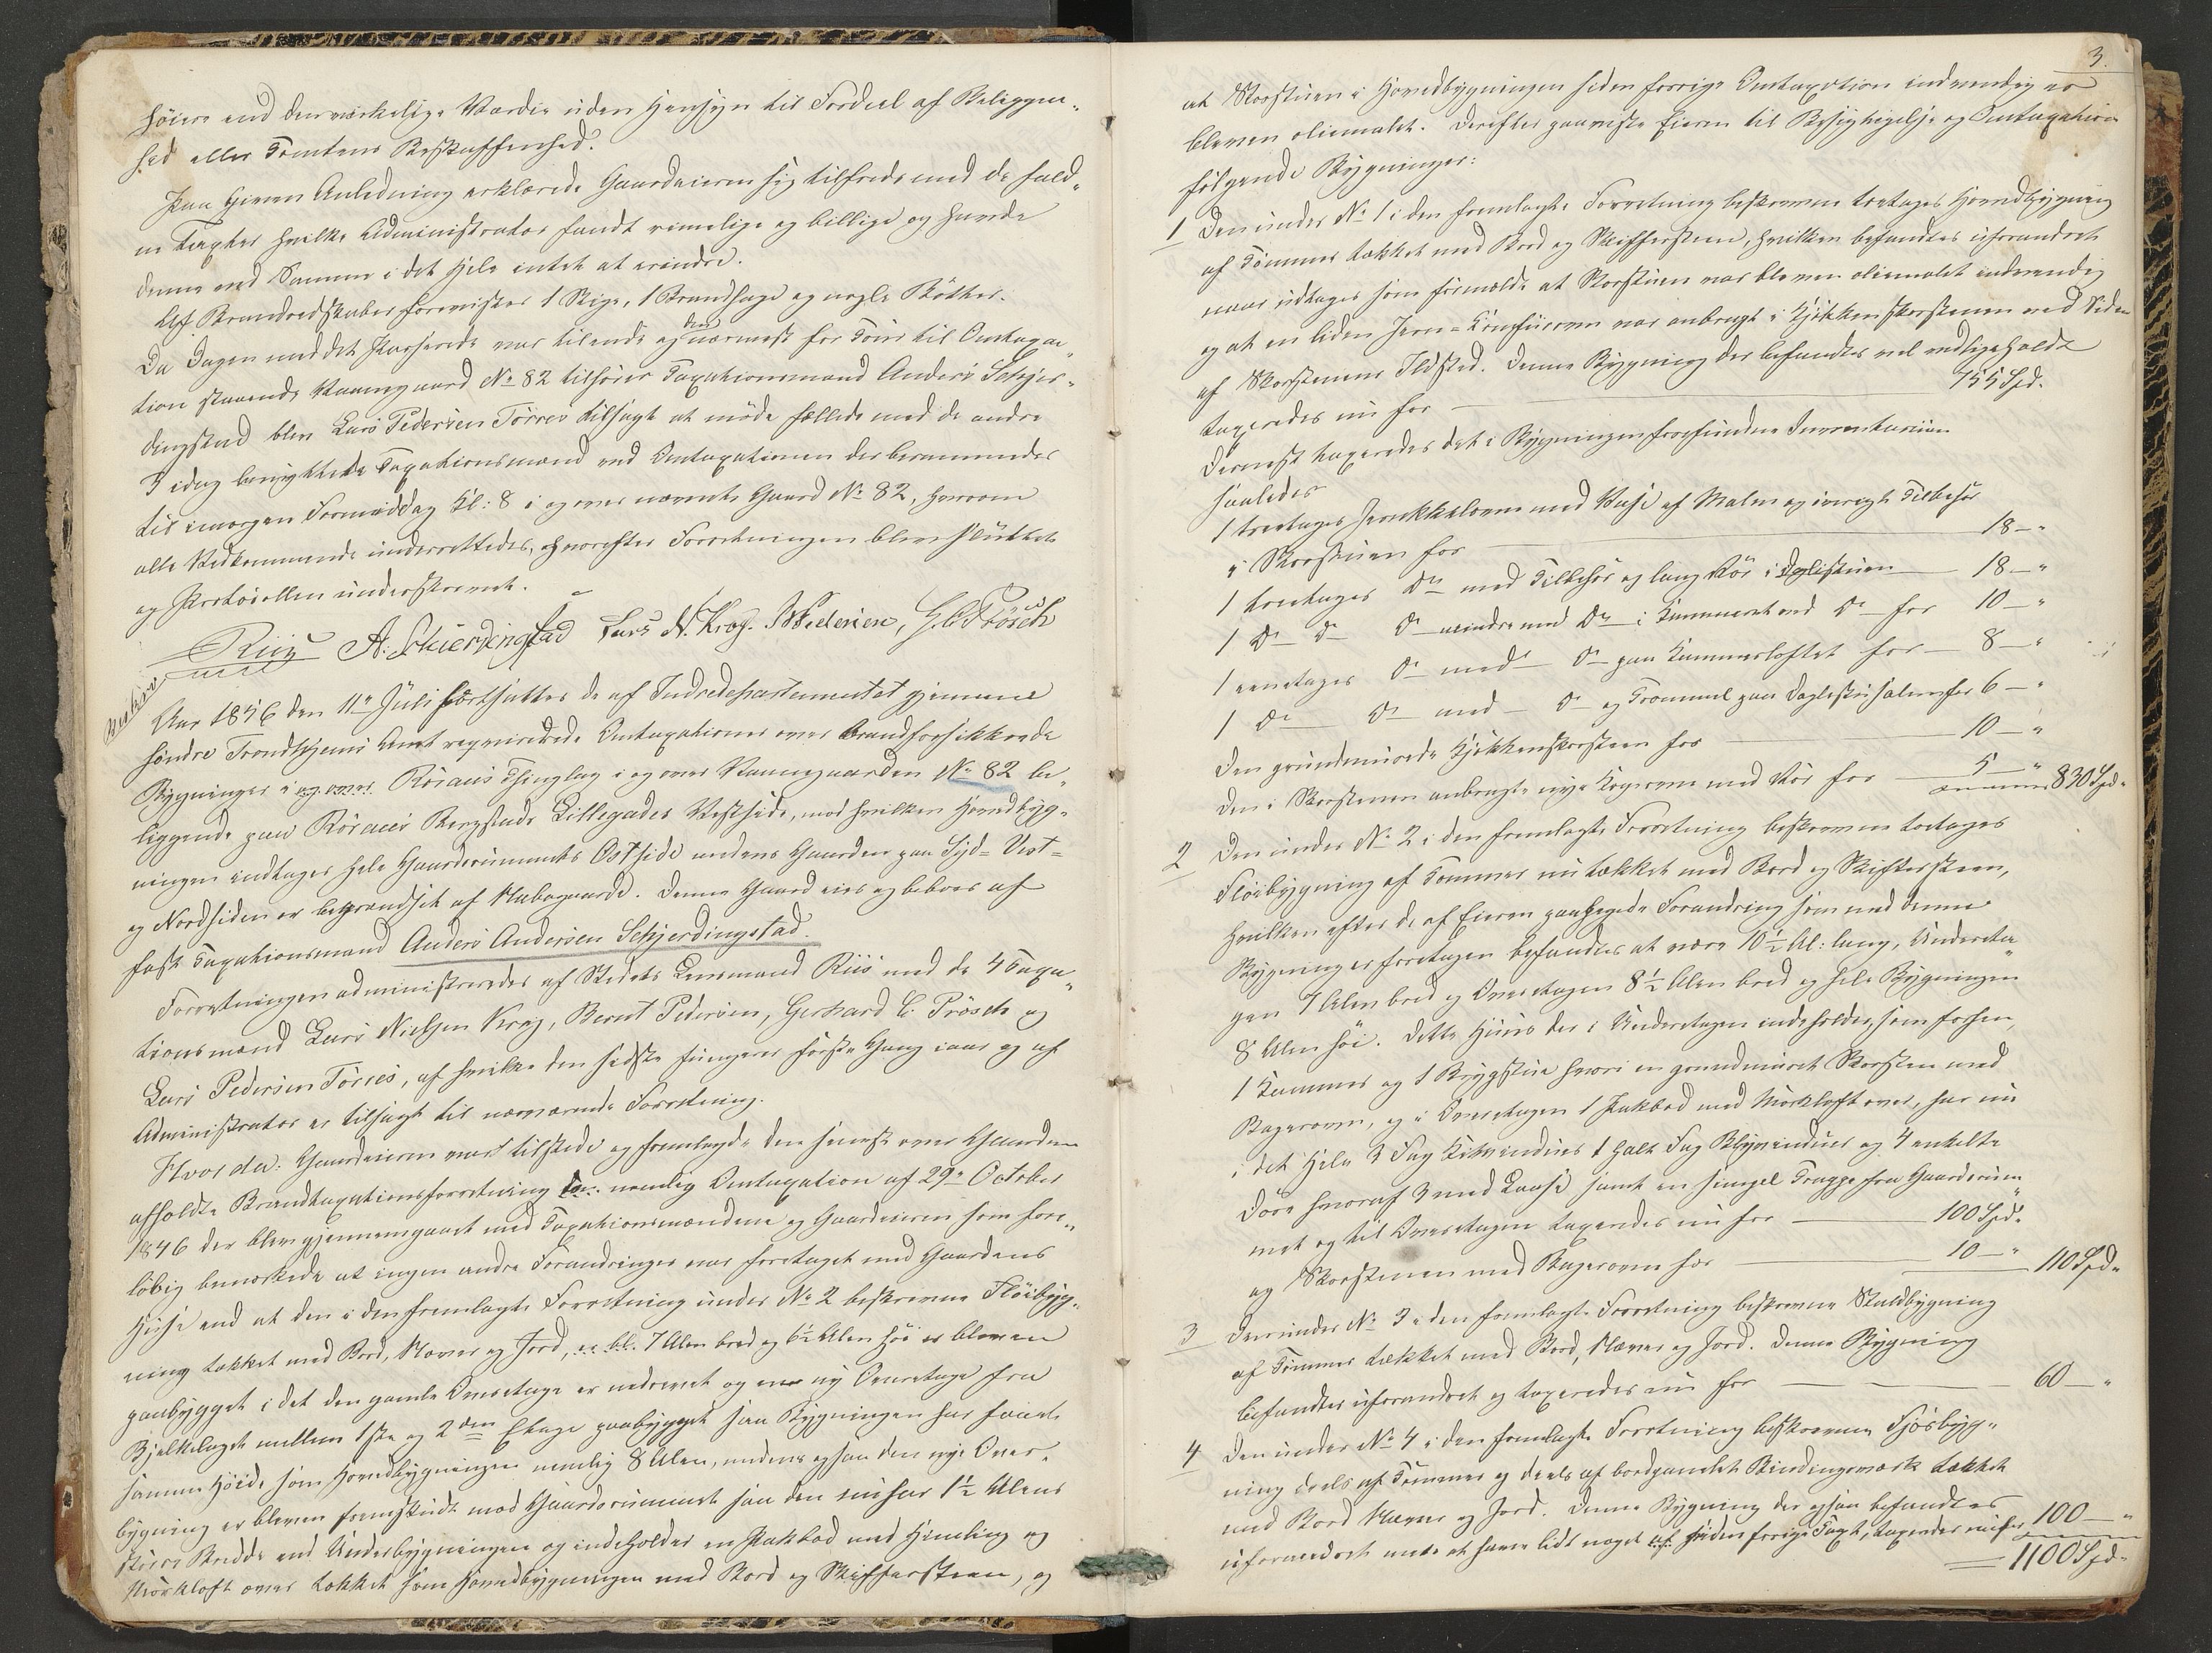 höiere end den værkelige Værdie uden Hensyn til Fordeel af Beliggen-
hed eller Tomtens Beskaffenhed.
Paa given Anledning erklærede Gaardeieren sig tilfreds med de fald-
ne Taxter hvilke Administrator fandt rimelige og billige og havde
denne ved Samme i det Hele intet at erindre.
Af Brandredskaber forevistes 1 Stige, 1 Brandhage og nogle Bøtter.
Da Dagen med det Passerede var tilende og den nærmest for Tour til Omtaxa-
tion staaende Vaanegaard No 82 tilhører Taxationsmand Anders Schjer-
dingstad blev Lars Pedersen Törres tilsagt at møde fælleds med de andre
3 idag benyttede Taxationsmænd ved Omtaxationen der berammedes
til imorgen Formiddag Kl: 8 i og over nævnte Gaard No 82, hvorom
alle Vedkommende underrettedes, hvorefter Forretningen blev sluttet
og Protocollen underskrevet.
Riis A. Schierdingstad Lars N. Krog. B Pedersen, G. C. Prösch
Aar 1856 den 11te Juli fortsattes de af Indredepartementet gjennem
søndre Trondhjems Amt requirerede Omtaxationer over brandforsikkrede
Bygninger i og over Röraas Thinglag i og over Vaanegaarden No 82 be-
liggende paa Röraas Bergstads Lillegades Vestside, mod hvilken Hovedbyg-
ningen indtager hele Gaardsrummets Ostside medens Gaarden paa Syd- Vest-
og Nordsiden er begrændset af Nabogaarde. Denne Gaard eies og beboes af
fast Taxationsmand Anders Andersen Schjerdingstad.
Forretningen administreredes af Stedets Lensmand Riis med de 4 Taxa-
tionsmænd Lars Nielsen Krog, Bernt Pedersen, Gerhard C. Prösch og
Lars Pedersen Törres, af hvilke den sidste fungerer første Gang iaar og af
Administrator er tilsagt til nærværende Forretning.
Hvor da: Gaardeieren var tilstede og fremlagde den senest over Gaarden
afholdte Brandtaxationsforretning nemlig Omtaxation af 29de October
1846 der blev gjennemgaaet med Taxationsmændene og Gaardeieren som fore-
løbig bemærkede at ingen andre Forandringer var foretaget med Gaardens
Huse end at den i den fremlagte Forretning under No 2 beskrevne Flöibyg-
ning tækket med Bord, Næver og Jord, 7 Alen bred og 6½ Alen høi er bleven
paabygget i det den gamle Overetage er nedrevet og en ny Overetage fra
Bjelkelaget mellem 1ste og 2den Etage paabygget saa Bygningen har faaet
samme Høide som Hovedbygningen nemlig 8 Alen, medens ogsaa den nye Over-
bygning er bleven fremskudt mod Gaardsrummet saa den nu har 1½ Alens
større Bredde end Underbygningen og indeholder en Pakbod med Himling og
Mørkloft over tækket som Hovedbygningen med Bord og Skiffersteen, og
3.
at Storstuen i Hovedbygningen siden forrige Omtaxation indvendig er
bleven oliemalet. Derefter paaviste Eieren til Besigtigelse og Omtaxation
følgende Bygninger:
1 Den under No 1 i den fremlagte Forretning beskrevne toetages Hovedbygning
af Tømmer tækket med Bord og Skiffersteen, hvilken befandtes uforandret
naar undtages som formeldt at Storstuen var bleven oliemalet indvendig
og at en liden Jern-Komfuurovn var anbragt i Kjøkkenskorstenen ved Siden
af Skorstenens Ildsted. Denne Bygning der befandtes vel vedligeholdt
taxeredes nu for 755 Spd.
Dernæst taxeredes det i Bygningen forefundne Inventarium
saaledes
1 treetages Jernkakkelovn med Vase af Malm og øvrigt Tilbehør
i Storstuen for 18 — "
1 treetages Do med Tilbehør og lang Rör i Daglistuen 18 — "
1 Do Do Do mindre med Do i Kammeret ved Do for 10 — "
1 eenetages Do med Do paa Kammerloftet for 8 — "
1 Do Do med Do og Trommel paa Daglistuesalen for 6 — "
Den grundmurede Kjøkkenskorsteen for 10 — "
Den i Skorstenen anbragte nye Kogeovn med Rör for 5 — " 830 Spd.
2 Den under No 2 i den fremlagte Forretning beskrevne toetages
Flöibygning af Tømmer nu tækket med Bord og Skiffersteen,
hvilken efter de af Eieren paapegede Forandring som med denne
Bygning er foretagen befandtes at være 10½ Al: lang, Undereta-
gen 7 Alen bred og Overetagen 8½ Alen bred og hele Bygningen
8 Alen høi. Dette Huus der i Underetagen indeholder, som forhen,
1 Kammer og 1 Brygstue hvori en grundmuret Skorsten med
Bagerovn, og i Overetagen 1 Pakbod med Mörkloft over, har nu
i det Hele 3 Fag Kitvinduer 1 halv Fag Blyvinduer og 4 enkelte
Döre hvoraf 3 med Laase samt en simpel Trappe fra Gaardsrum-
met og til Overetagen taxeredes nu for 100 Spd.
og Skorstenen med Bagerovn for 10 — " 110 Spd.
3 Den under No 3 i den fremlagte Forretning beskrevne Staldbygning
af Tømmer tækket med Bord, Næver og Jord. Denne Bygning
befandtes uforandret og taxeredes nu for 60 — "
4 Den under No 4 i den fremlagte Forretning beskrevne Fjösbyg-
ning deels af Tømmer og deels af bordpanelet Bindingsværk tækket
med Bord Næver og Jord. Denne Bygning der ogsaa befandtes
uforandret uden at have lidt noget siden forrige Taxt, taxeredes nu for 100 — "
1100 Spd.